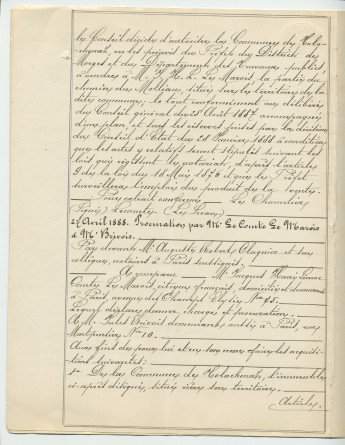 le Conseil décide d'autoriser la Commune de Tola-
chenaz, vu les préavis du Préfet du District de
Morges et du Département des Travaux publics,
à vendre à M. J. H. L. Le Marois, la partie du
chemin du Molliau, située sur le territoire de la
dite commune; le tout conformément au délibéré
du Conseil général du 25 Août 1887 accompagné
d'un plan et sous les réserves faites par la décision
du Conseil d'Etat du 28 Janvier 1888 à condition
que les actes y relatifs soient stipulés suivant les
lois qui régissent les notariats, d'après l'article
9 de la loi du 18 Mai 1876 et que le Préfet
surveillera l'emploi du produit de la vente.
Pour extrait conforme Le Chancelier
(Signé) Lecomte (Le Sceau)
27 Avril 1888. Procuration par Mr Le Comte Le Marois
à Mr Brivois.
Par devant Me Auguste Robert Plagnive et son
collègue, notaires à Paris soussignés.
A comparu M. Jacques Henri
Comte Le Marois, citoyen français, domicilié et demeurant
à Paris, avenue des Champs Elysées No 75.
Lequel déclare donner charge et procuration,
à M. Jules Brivois demeurant aussi à Paris rue
No 10.
Aux fins de pour lui et en son nom faire les acquisi-
tions suivantes:
1o De la Commune de Tolochenaz, l'immeuble
ci-après désigné, situé rière son territoire.
Articles.